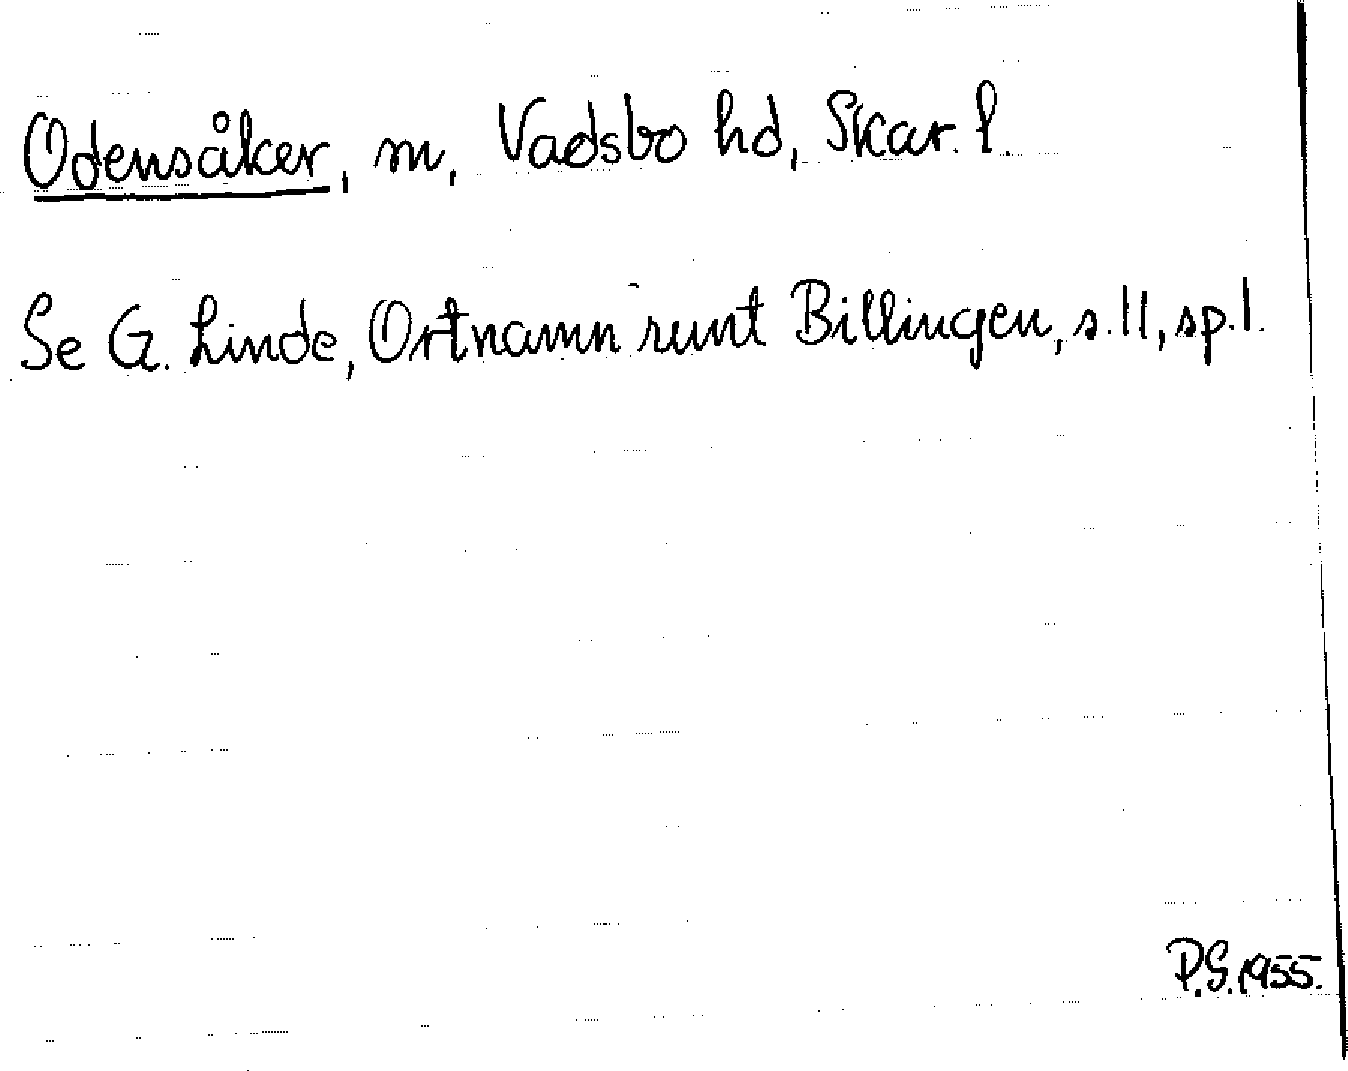 Odensåker, m, Vadsbo hd, Skar. l.
Se G. Linde, Ortnamn runt Billingen, s. 11, sp. 1.
P.S. 1955.